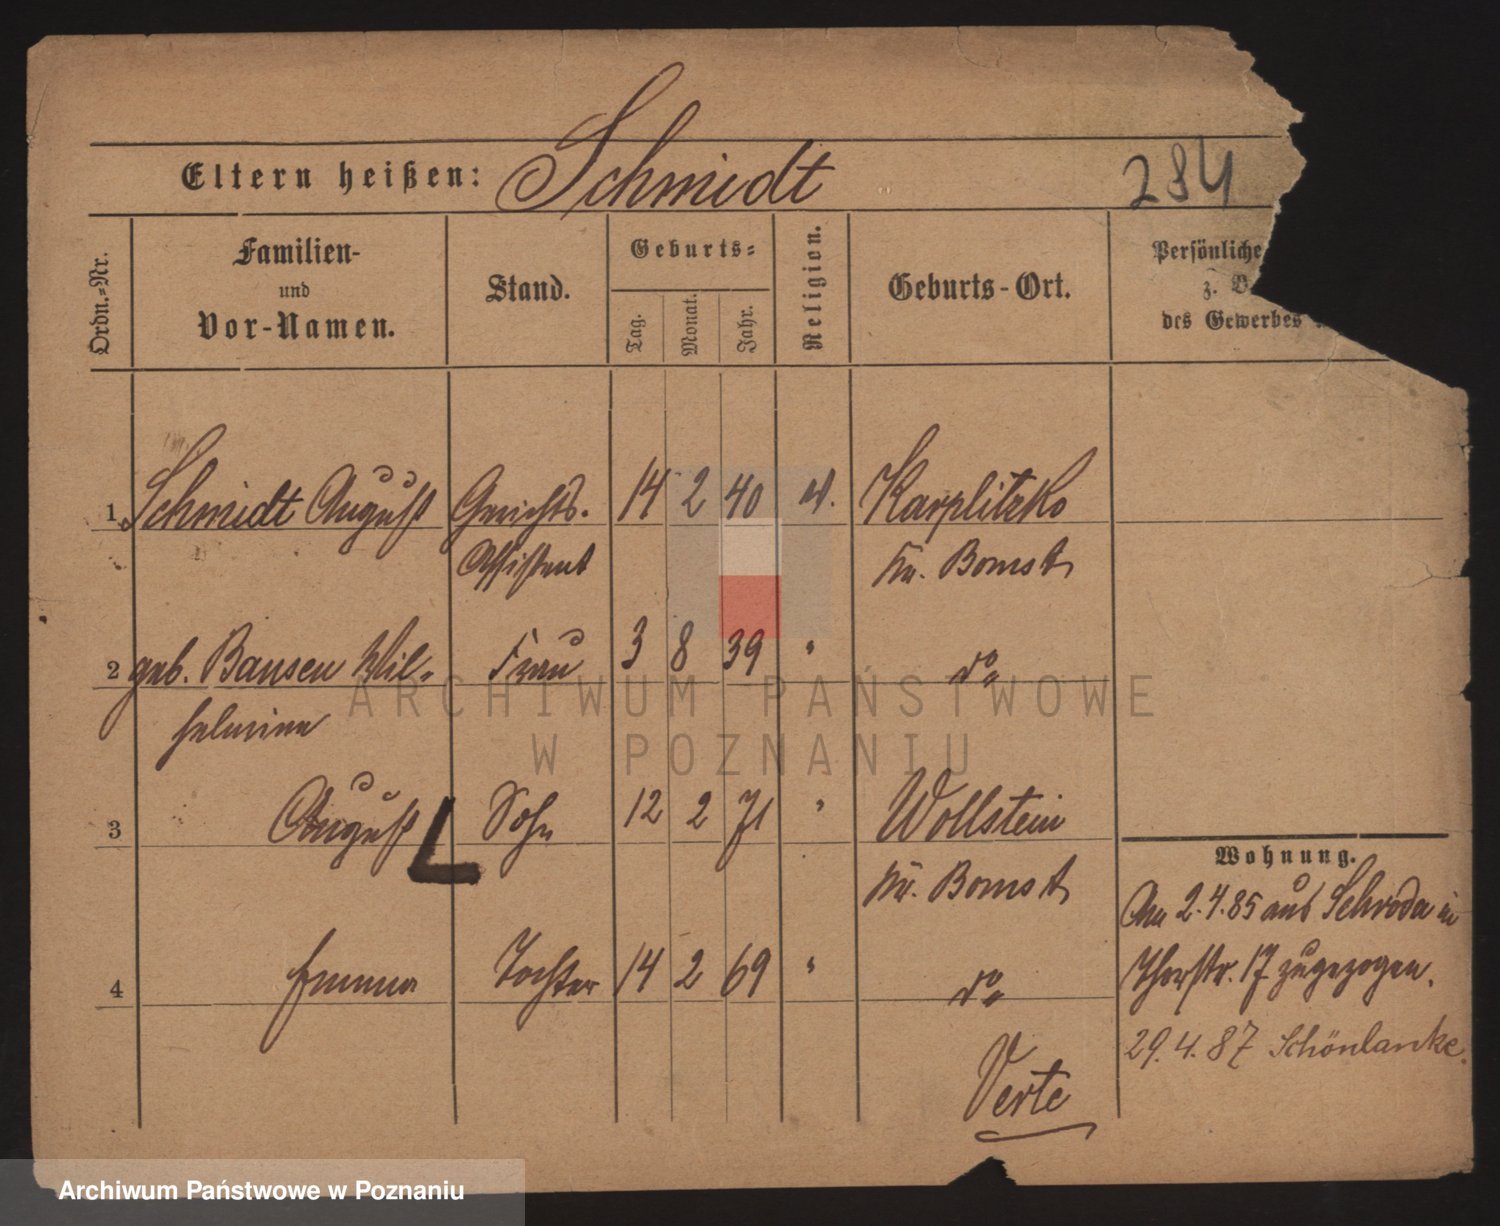 Eltern heißen: Schmidt
284
Ordn.-Nr.
Familien-
und
Vor-Namen.
Stand.
Geburts-
Tag.
Monat.
Jahr.
Religion.
Geburts-Ort.
Persönliche
z. B
des Gewerbes
1 Schmidt August Gerichts- 14 2 40 ev. Karplitzko
Assistent Kr. Bomst
2 geb. Bansen Wil- Frau 3 8 39 " do
helmine
3 August L Sohn 12 2 71 " Wollstein
Kr. Bomst
4 Emma Tochter 14 2 69 " do
Verte
Wohnung.
Am 2.4.85 aus Schroda in
Thorstr. 17 zugezogen.
29.4.87 Schönlanke.
ARCHIWUM PAŃSTWOWE
W POZNANIU
Archiwum Państwowe w Poznaniu